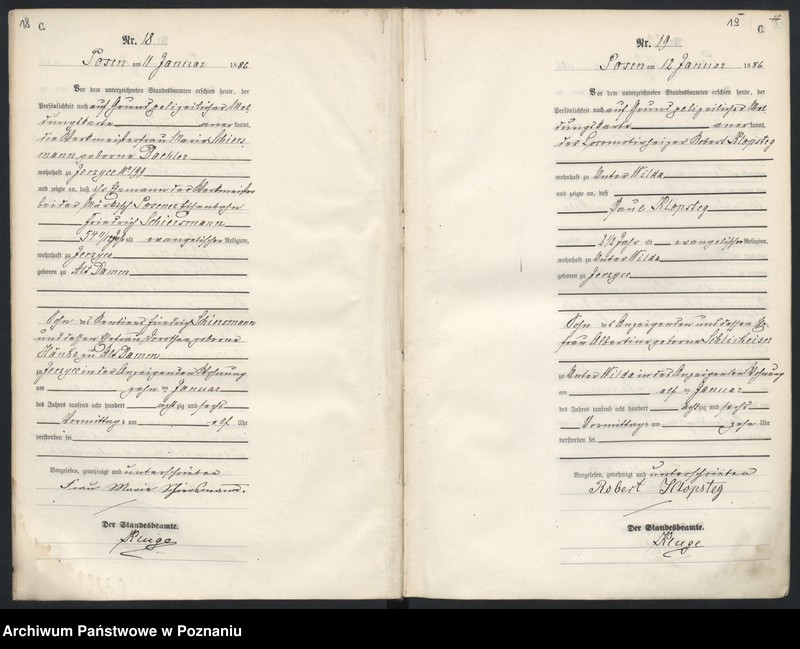 18 C.
Nr. 18
Posen am 11 Januar 1886
Vor dem unterzeichneten Standesbeamten erschien heute, der
Persönlichkeit nach auf Grund polizeilicher Mel
dungskarte anerkannt,
die Werkmeisterfrau Marie Schiers
mann geborne Daehler
wohnhaft zu Jerzyce No 199
und zeigte an, daß ihr Ehemann der Werkmeister
bei der Märkisch Posener Eisenbahn
Friedrich Schiersmann
54 Jahr alt evangelischer Religion,
wohnhaft zu Jerzyce
geboren zu Alt Damm
Sohn des Rentiers Friedrich Schiersmann
und dessen Ehefrau Dorothea geborne
zu Alt Damm
zu Jerzyce in der Anzeigenden Wohnung
am zehn ten Januar
des Jahres tausend acht hundert achtzig und sechs
Vormittags um elf Uhr
verstorben sei
Vorgelesen, genehmigt und unterschrieben
Frau Marie Schiersmann.
Der Standesbeamte.
Kluge
19 C.
Nr. 19
Posen am 12 Januar 1886.
Vor dem unterzeichneten Standesbeamten erschien heute, der
Persönlichkeit nach auf Grund polizeilicher Mel
dungskarte anerkannt,
der Locomotivheizer Robert Klopsteg
wohnhaft zu Unter Wilda
und zeigte an, daß
Paul Klopsteg
2 1/2 Jahr alt evangelischer Religion,
wohnhaft zu Unter Wilda
geboren zu Jerzyce
Sohn des Anzeigenden und dessen Ehe
frau Albertine geborne
zu Unter Wilda in des Anzeigenden Wohnung
am elf ten Januar
des Jahres tausend acht hundert achtzig und sechs
Vormittags um zehn Uhr
verstorben sei
Vorgelesen, genehmigt und unterschrieben
Robert Klopsteg
Der Standesbeamte.
Kluge
Archiwum Państwowe w Poznaniu